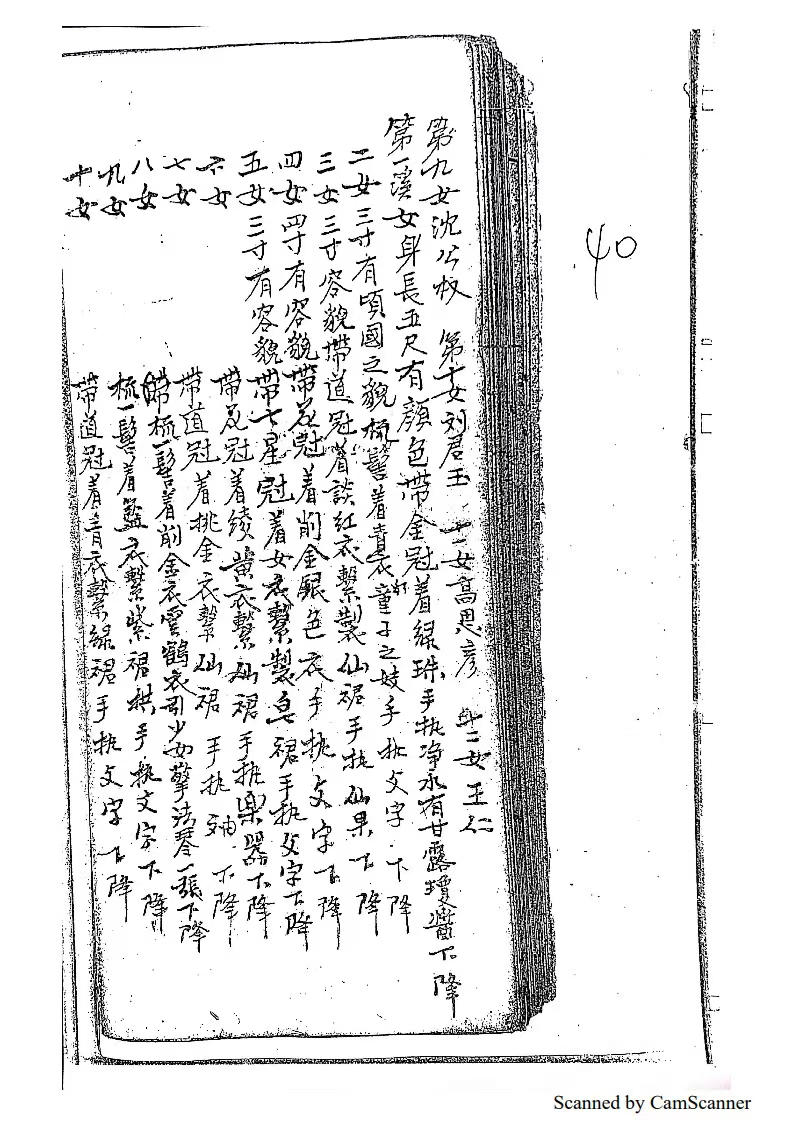 第九女沈公 第十女刘君王 十一女高思彦 十二女王仁
第一溪女身長五尺有顏色帶金冠着綠珠手执净水有甘露 下降
二女三寸有頃國之貌梳髻着青衣童子之妓手执文字下降
三女三寸容貌帶道冠着談紅衣繫製仙裙手执仙果下降
四女四寸有容貌帶花冠着削金銀色衣手执文字下降
五女三寸有容貌帶七星冠着女衣繫製皂裙手执文字下降
六女 帶花冠着綾黃衣繫仙裙手执樂器下降
七女 帶道冠着挑金衣繫仙裙手执 下降
八女 梳一髻着削金衣雲鶴衣引少女擎法琴一張下降
九女 梳一髻着藍衣繫紫裙 手执文字下降
十女 帶道冠着青衣繫緑裙手执文字下降
40
Scanned by CamScanner